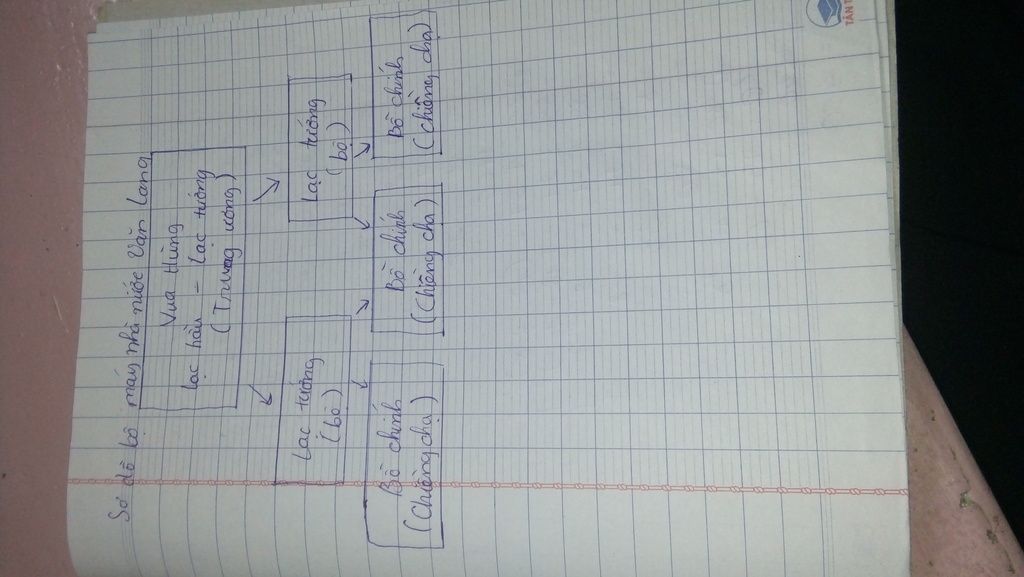 Sơ đồ bộ máy nhà nước Văn Lang
Vua Hùng
Lạc hầu - Lạc tướng
(Trung ương)
Lạc tướng
(bộ)
Lạc tướng
(bộ)
Bồ chính
(Chiềng chạ)
Bồ chính
(Chiềng chạ)
Bồ chính
(Chiềng chạ)
TÂN T